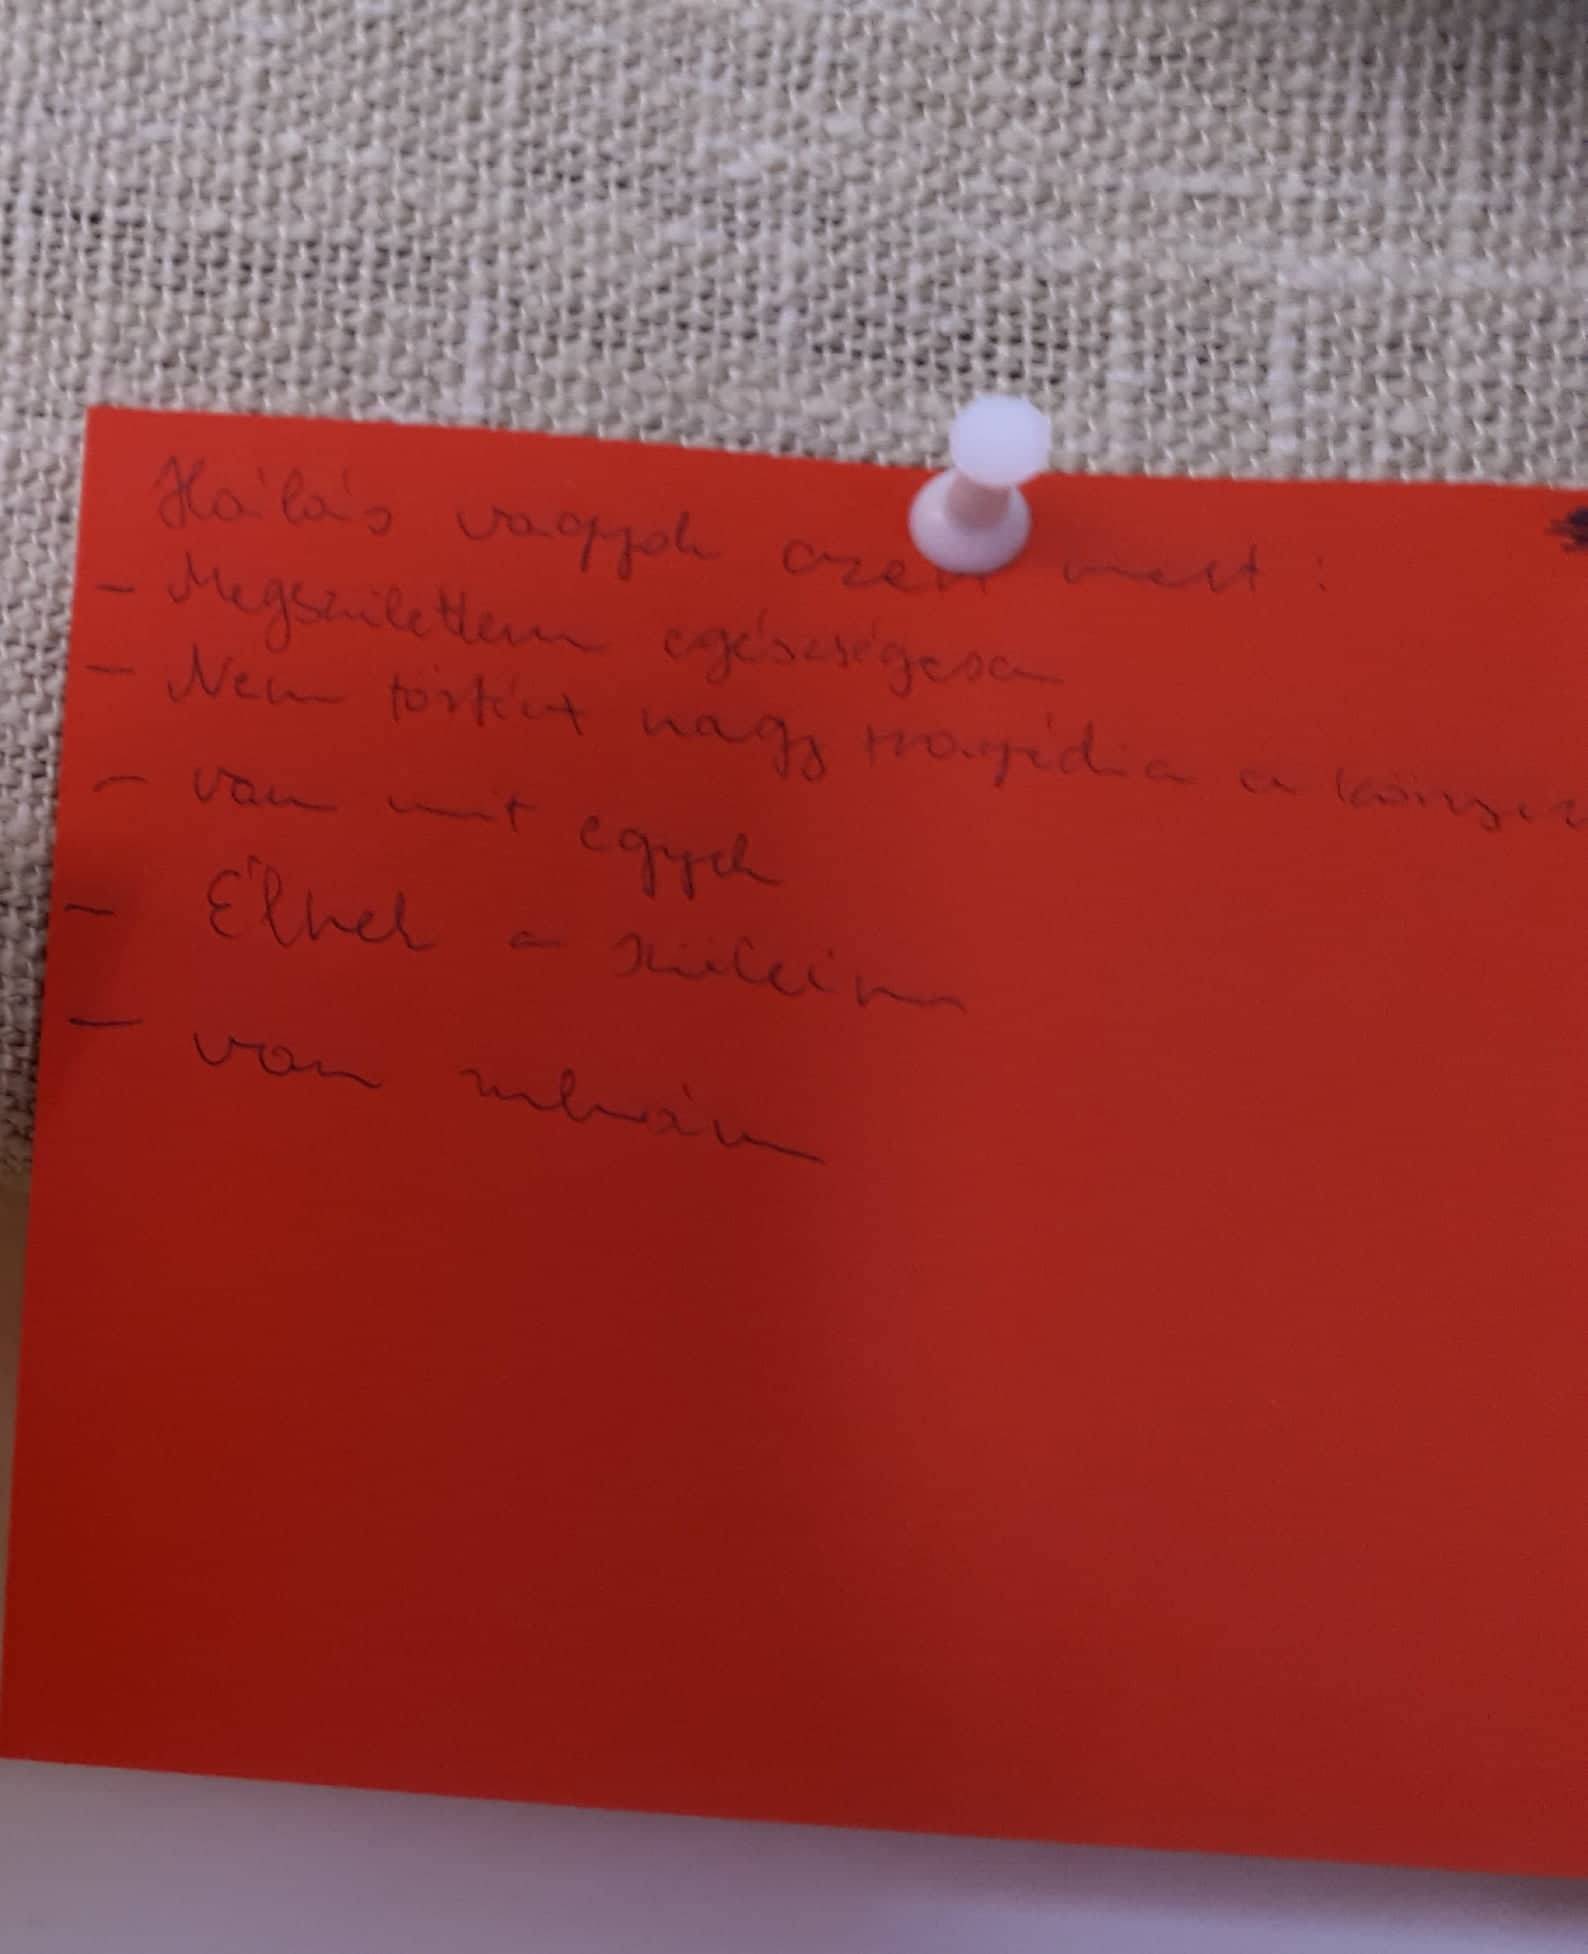 Hálás vagyok azért mert:
- Megszülettem egészségesen
- Nem történt nagy tragédia a
- van mit egyek
- Élnek a szüleim
- van ruhám